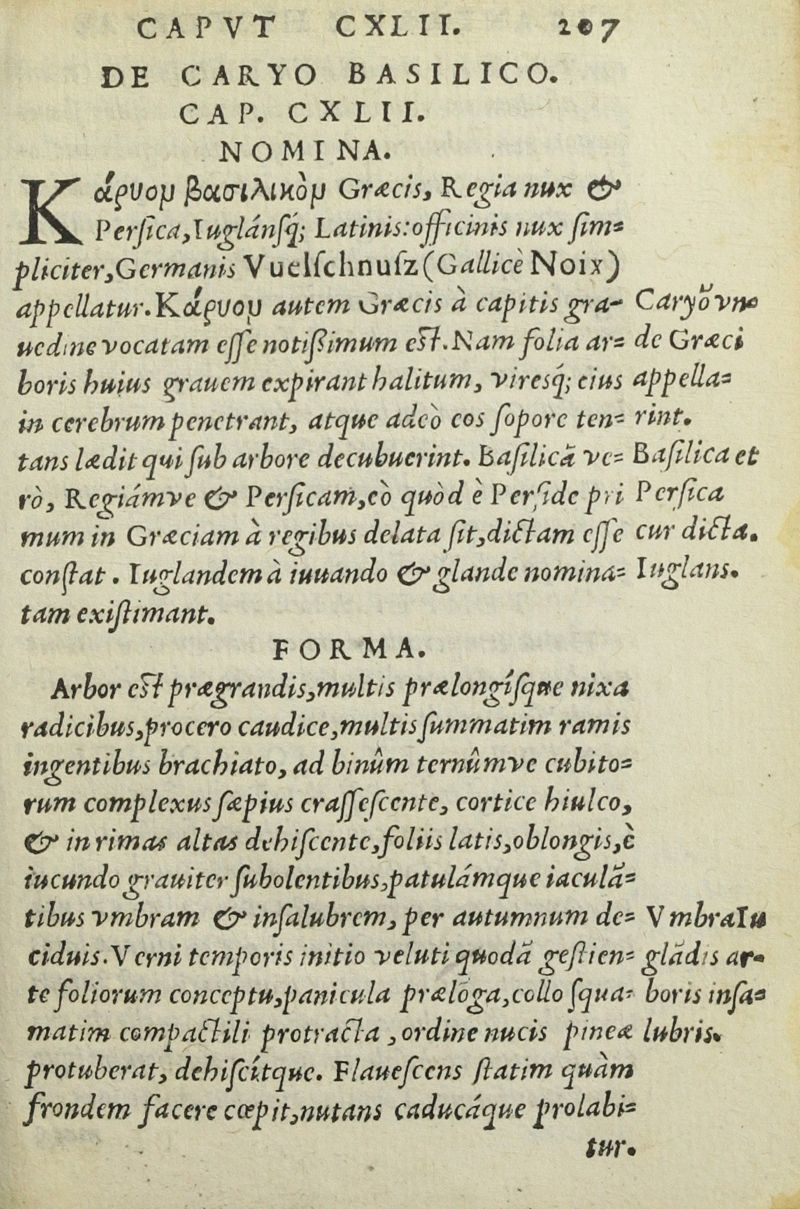 CAPVT CXLII. 207
DE CARYO BASILICO.
CAP. CXLII.
NOMINA.
Κάρυομ βασιλικὸμ Græcis, Regia nux &
Persica, Iuglánsq́; Latinis: officinis nux sim=
pliciter, Germanis Vuelschnusz (Gallicè Noix)
appellatur. Κάρυομ autem Græcis à capitis gra-
uedine vocatam esse notißimum est. Nam folia ar=
boris huius grauem expirant halitum, viresq́; eius
in cerebrum penetrant, atque adeò eos sopore ten=
tans lædit qui sub arbore decubuerint. Basilicã ve=
rò, Regiámve & Persicam, eò quòd è Perside pri
mum in Græciam à regibus delata sit, dictam esse
constat. Iuglandem à iuuando & glande nomina=
tam existimant.
Caryŏ vn
de Græci
appella=
rint.
Basilica et
Persica
cur dicta.
Iuglans.
FORMA.
Arbor est prægrandis, multis prælongísque nixa
radicibus, procero caudice, multis summatim ramis
ingentibus brachiato, ad binûm ternûmve cubito=
rum complexus sæpius crassescente, cortice hiulco,
& in rimas altas dehiscente, foliis latis, oblongis, è
iucundo grauiter subolentibus, patulámque iaculã=
tibus vmbram & insalubrem, per autumnum de=
ciduis. Verni temporis initio veluti quodã gestien=
te foliorum conceptu, panicula prælõga, collo squa=
matim compactili protracta, ordine nucis pineæ
protuberat, dehiscítque. Flauescens statim quàm
frondem facere cœpit, nutans caducáque prolabi=
tur.
Vmbra Iu
glãdis ar-
boris insa=
lubris.